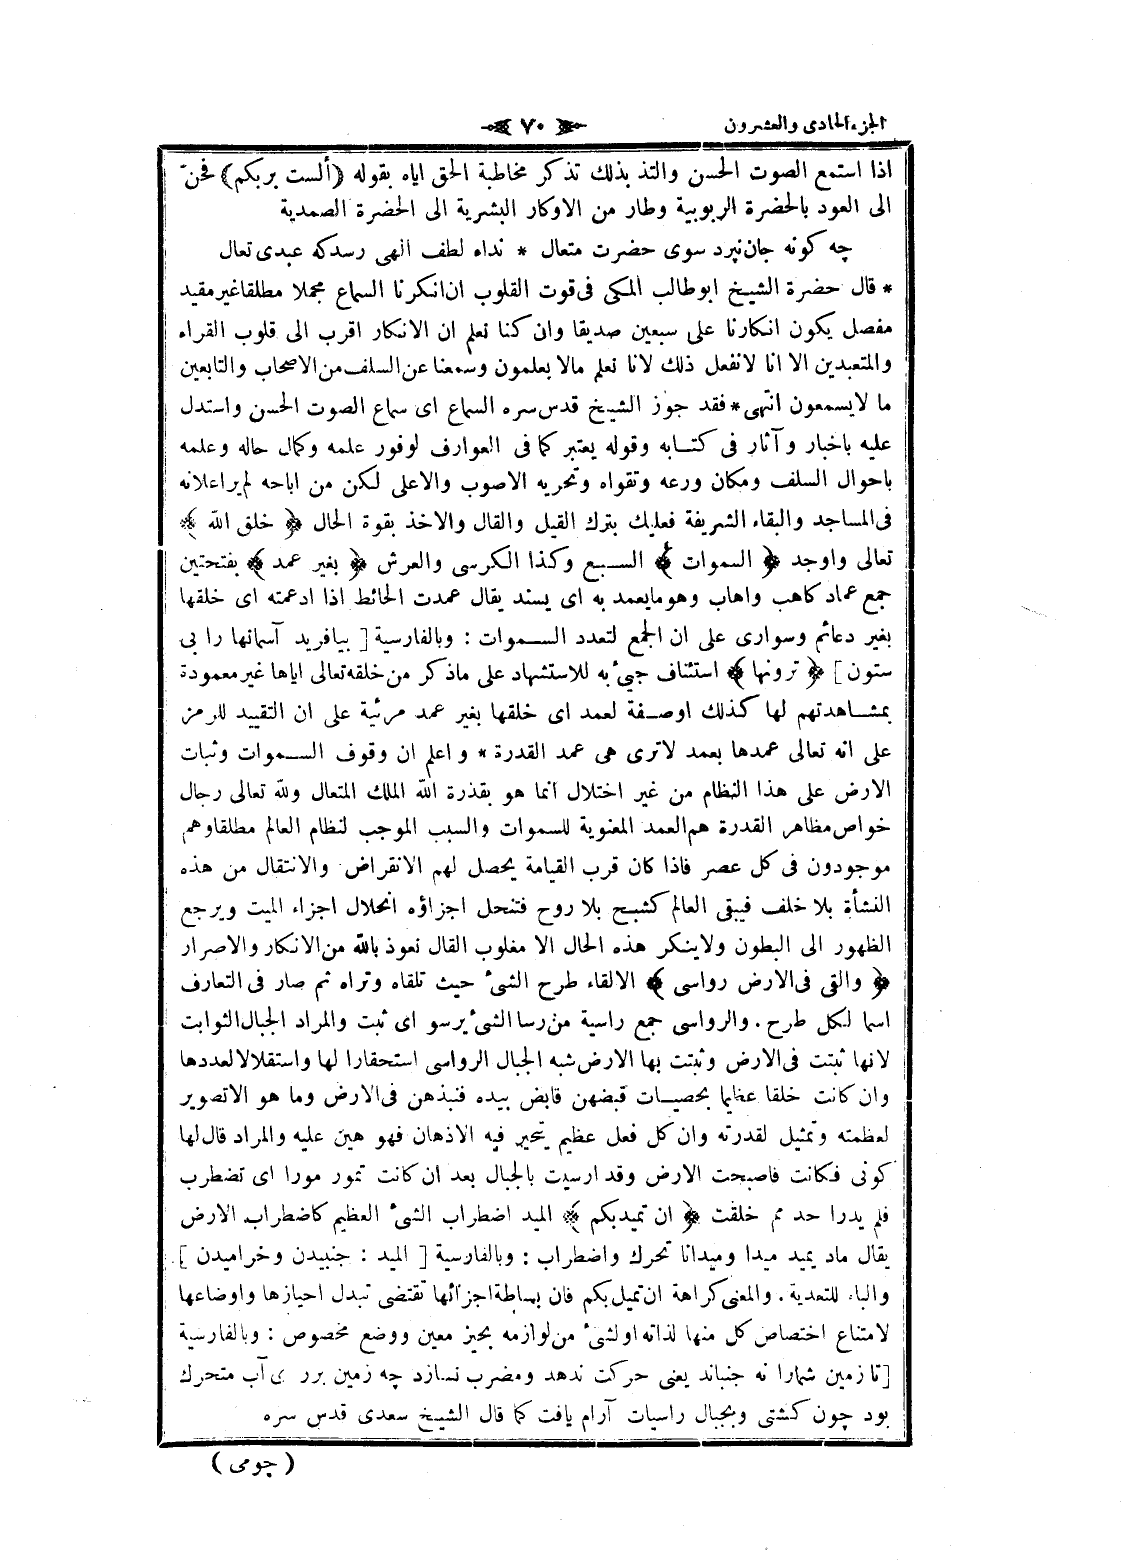 الجزء الحادى والعشرون
٧٠
اذا استمع الصوت الحسن والتذ بذلك تذكر مخاطبة الحق اياه بقوله (ألست بربكم) فحنّ
الى العود بالحضرة الربوبية وطار من الاوكار البشرية الى الحضرة الصمدية
چه كونه جان نپرد سوى حضرت متعال * نداء لطف الهى رسدكه عبدى تعال
* قال حضرة الشيخ ابوطالب المكى فى قوت القلوب ان انكرنا السماع مجملا مطلقا غير مقيد
مفصل يكون انكارنا على سبعين صديقا وان كنا نعلم ان الانكار اقرب الى قلوب القراء
والمتعبدين الا انا لا نفعل ذلك لانا نعلم مالا يعلمون وسمعنا عن السلف من الاصحاب والتابعين
ما لايسمعون انتهى * فقد جوز الشيخ قدس سره السماع اى سماع الصوت الحسن واستدل
عليه باخبار وآثار فى كتابه وقوله يعتبر كما فى العوارف لوفور علمه وكمال حاله وعلمه
باحوال السلف ومكان ورعه وتقواه وتحريه الاصوب والاعلى لكن من اباحه لم ير اعلانه
فى المساجد والبقاء الشريفة فعليك بترك القيل والقال والاخذ بقوة الحال ﴿ خلق الله ﴾
تعالى واوجد ﴿ السموات ﴾ السبع وكذا الكرسى والعرش ﴿ بغير عمد ﴾ بفتحتين
جمع عماد كاهب واهاب وهو مايعمد به اى يسند يقال عمدت الحائط اذا ادعمته اى خلقها
بغير دعائم وسوارى على ان الجمع لتعدد السموات : وبالفارسية [ بيافريد آسمانها را بى
ستون ] ﴿ ترونها ﴾ استئناف جيئ به للاستشهاد على ماذكر من خلقه تعالى اياها غير معمودة
بمشاهدتهم لها كذلك اوصفة لعمد اى خلقها بغير عمد مرئية على ان التقييد للرمز
على انه تعالى عمدها بعمد لاترى هى عمد القدرة * واعلم ان وقوف السموات وثبات
الارض على هذا النظام من غير اختلال انما هو بقدرة الله الملك المتعال ولله تعالى رجال
خواص مظاهر القدرة هم العمد المعنوية للسموات والسبب الموجب لنظام العالم مطلقا وهم
موجودون فى كل عصر فاذا كان قرب القيامة يحصل لهم الانقراض والانتقال من هذه
النشأة بلا خلف فيبقى العالم كشبح بلا روح فتنحل اجزاؤه انحلال اجزاء الميت ويرجع
الظهور الى البطون ولاينكر هذه الحال الا مغلوب القال نعوذ بالله من الانكار والاصرار
﴿ والقى فى الارض رواسى ﴾ الالقاء طرح الشئ حيث تلقاه وتراه ثم صار فى التعارف
اسما لكل طرح . والرواسى جمع راسية من رسا الشئ يرسو اى ثبت والمراد الجبال الثوابت
لانها ثبتت فى الارض وثبتت بها الارض شبه الجبال الرواسى استحقارا لها واستقلالا لعددها
وان كانت خلقا عظيما بحصيات قبضهن قابض بيده فنبذهن فى الارض وما هو الاتصوير
لعظمته وتمثيل لقدرته وان كل فعل عظيم يتحير فيه الاذهان فهو هين عليه والمراد قال لها
كونى فكانت فاصبحت الارض وقد ارسيت بالجبال بعد ان كانت تمور مورا اى تضطرب
فلم يدرا حد مم خلقت ﴿ ان تميدبكم ﴾ الميد اضطراب الشئ العظيم كاضطراب الارض
يقال ماد يميد ميدا وميدانا تحرك واضطراب : وبالفارسية [ الميد : جنبيدن وخراميدن ]
والباء للتعدية . والمعنى كراهة ان تميل بكم فان بساطة اجزائها تقتضى تبدل احيازها واوضاعها
لامتناع اختصاص كل منها لذاته اولشئ من لوازمه بحيز معين ووضع مخصوص : وبالفارسية
[ تا زمين شمارا نه جنباند يعنى حركت ندهد ومضرب نسازد چه زمين برر ى آب متحرك
بود چون كشتى وبجبال راسيات آرام يافت كما قال الشيخ سعدى قدس سره
( چومى )